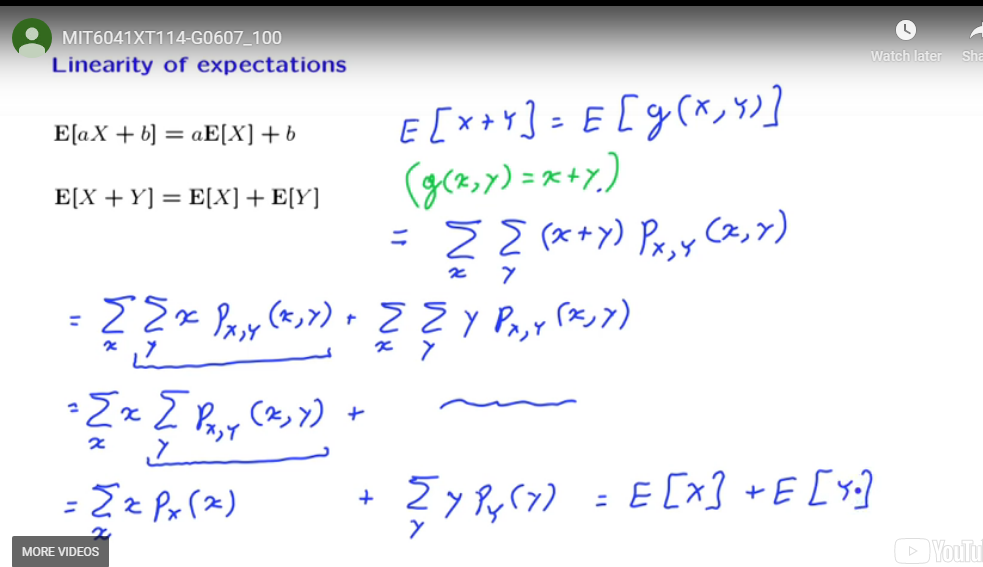 MIT6041XT114-G0607_100
Watch later
Sha
Linearity of expectations
E[aX + b] = aE[X] + b
E[X + Y] = E[X] + E[Y]
E[X+Y] = E[g(X,Y)]
(g(x,y) = x+y.)
= ∑x ∑y (x+y) Px,Y (x,y)
= ∑x ∑y x Px,Y (x,y) + ∑x ∑y y Px,Y (x,y)
= ∑x x ∑y Px,Y (x,y) +
= ∑x x Px (x) + ∑y y PY (y) = E[X] + E[Y]
MORE VIDEOS
YouTu